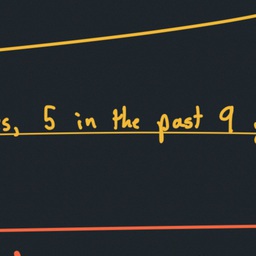 s, 5 in the past 9